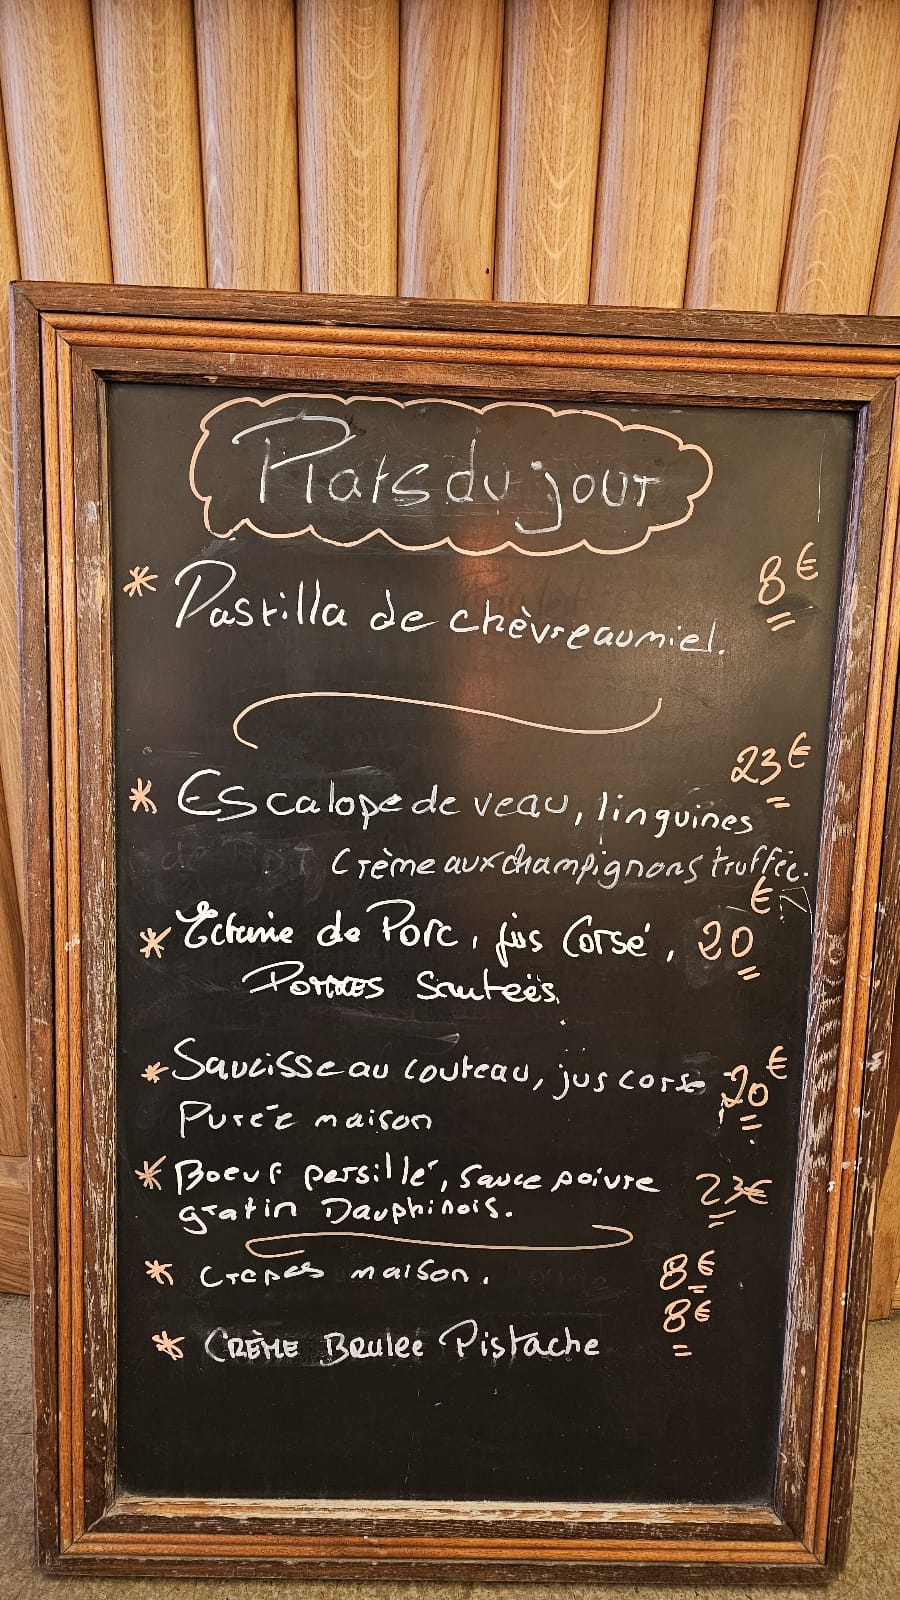 Plats du jour
* Pastilla de chèvre au miel. 8€
23€
* Escalope de veau, linguines
Crème aux champignons truffée.
* Echine de Porc, jus Corsé, 20€
Pommes Sautées.
* Saucisse au couteau, jus corsé 20€
Purée maison
* Boeuf persillé, sauce poivre 23€
gratin Dauphinois.
* Crepes maison. 8€
8€
* CRÈME Brulee Pistache